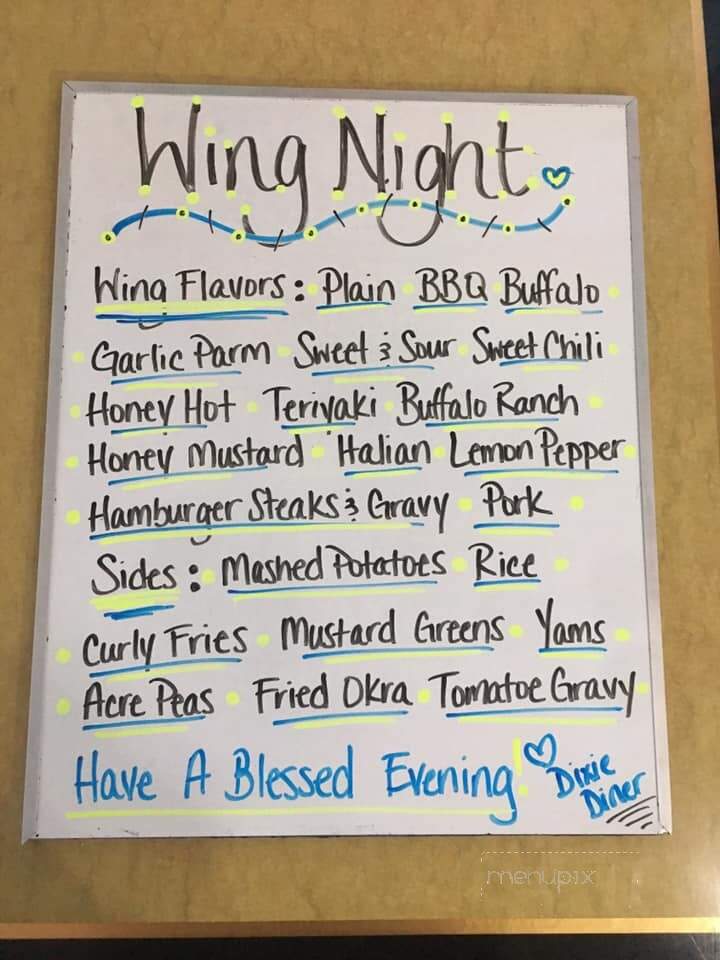 Wing Night
Wing Flavors: Plain · BBQ · Buffalo ·
· Garlic Parm · Sweet & Sour · Sweet Chili ·
· Honey Hot · Teriyaki · Buffalo Ranch ·
· Honey Mustard · Italian · Lemon Pepper ·
· Hamburger Steaks & Gravy · Pork ·
Sides: · Mashed Potatoes · Rice ·
· Curly Fries · Mustard Greens · Yams ·
· Acre Peas · Fried Okra · Tomatoe Gravy ·
Have A Blessed Evening!
Dixie
Diner
menupix